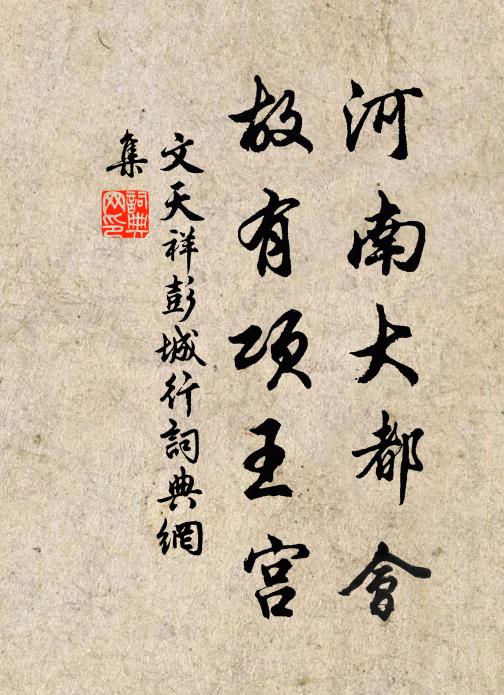 河南大都會
故有项王宫
文天祥彭城行詞典網
集
詞典
网印